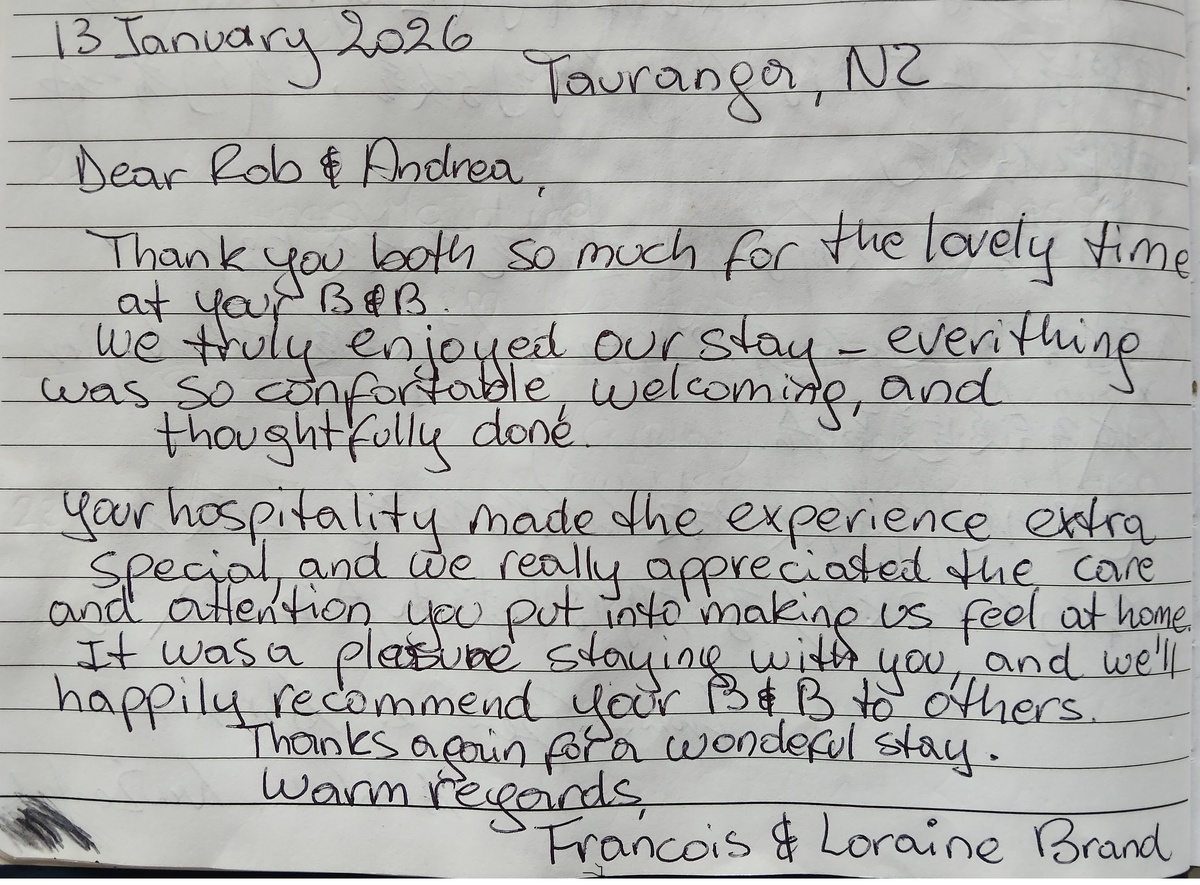 13 January 2026
Tauranga, NZ
Dear Rob & Andrea,
Thank you both so much for the lovely time
at your B&B.
We truly enjoyed our stay – everithing
was so confortable, welcoming, and
thoughtfully done.
Your hospitality made the experience extra
special, and we really appreciated the care
and attention you put into making us feel at home.
It was a pleasure staying with you, and we'll
happily recommend your B&B to others.
Thanks again for a wondeful stay.
Warm regards,
Francois & Loraine Brand